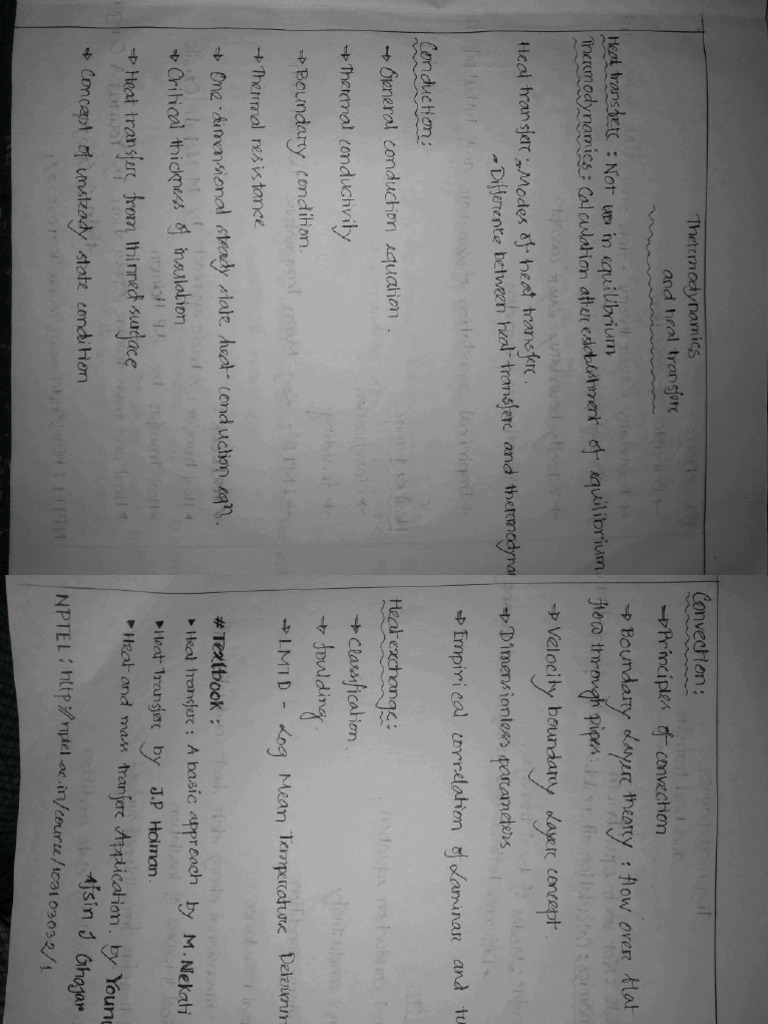 Thermodynamics
and heat transfer
Heat transfere : Not up in equilibrium
Thermodynamics : Calculation after establishment of equilibrium.
Heat transfere → Modes of heat transfere.
→ Difference between heat transfere and thermodyna
Conduction :
→ General conduction equation .
→ Thermal conductivity
→ Boundary condition.
→ Thermal resistance
→ One-dimensional steady state heat conduction eqn.
→ Critical thickness of insulation
→ Heat transfere from thinned surface
→ Concept of unsteady state condition
Convection :
→ Principles of convection
→ Boundary Layere theory : flow overe flat
flow through pipes
→ Velocity boundary Layere concept.
→ Dimensionless parameters
→ Empirical correlation of Laminare and tu
Heat exchange :
→ Classification.
→ foulding.
→ LMTD - Log Mean Temperature Determin
# Textbook :
▸ Heat transfere : A basic approach by M. Nekati
▸ Heat Transfere by J.P Holman.
▸ Heat and mass tranfere Application. by Youn
Afsin J Ghajar
NPTEL : http://nptel.ac.in/course/103103032/1